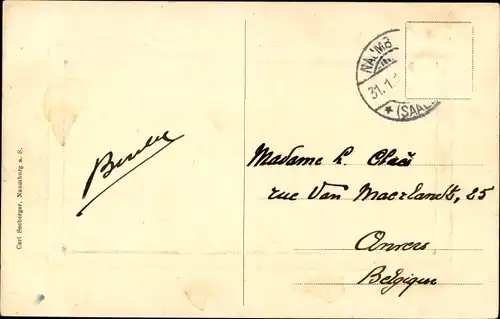 Carl Seeberger, Naumburg a. S.
NAUMB
31.1.
* (SAAL
Madame L. Claes
rue Van Maerlandt, 25
Anvers
Belgique